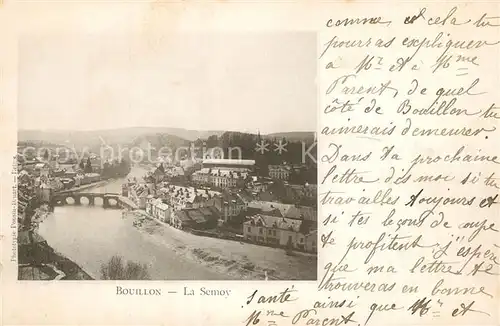 comme cela tu
pourras expliquer
à Mr et à Mme
Parent, de quel
côté de Bouillon tu
aimerais demeurer.
Dans ta prochaine
lettre dis moi si tu
travailles toujours et
si tes leçons de coupe
te profitent J'espère
que ma lettre te
trouveras en bonne
santé ainsi que Mr et
Mme Parent,
BOUILLON — La Semoy
delcampe